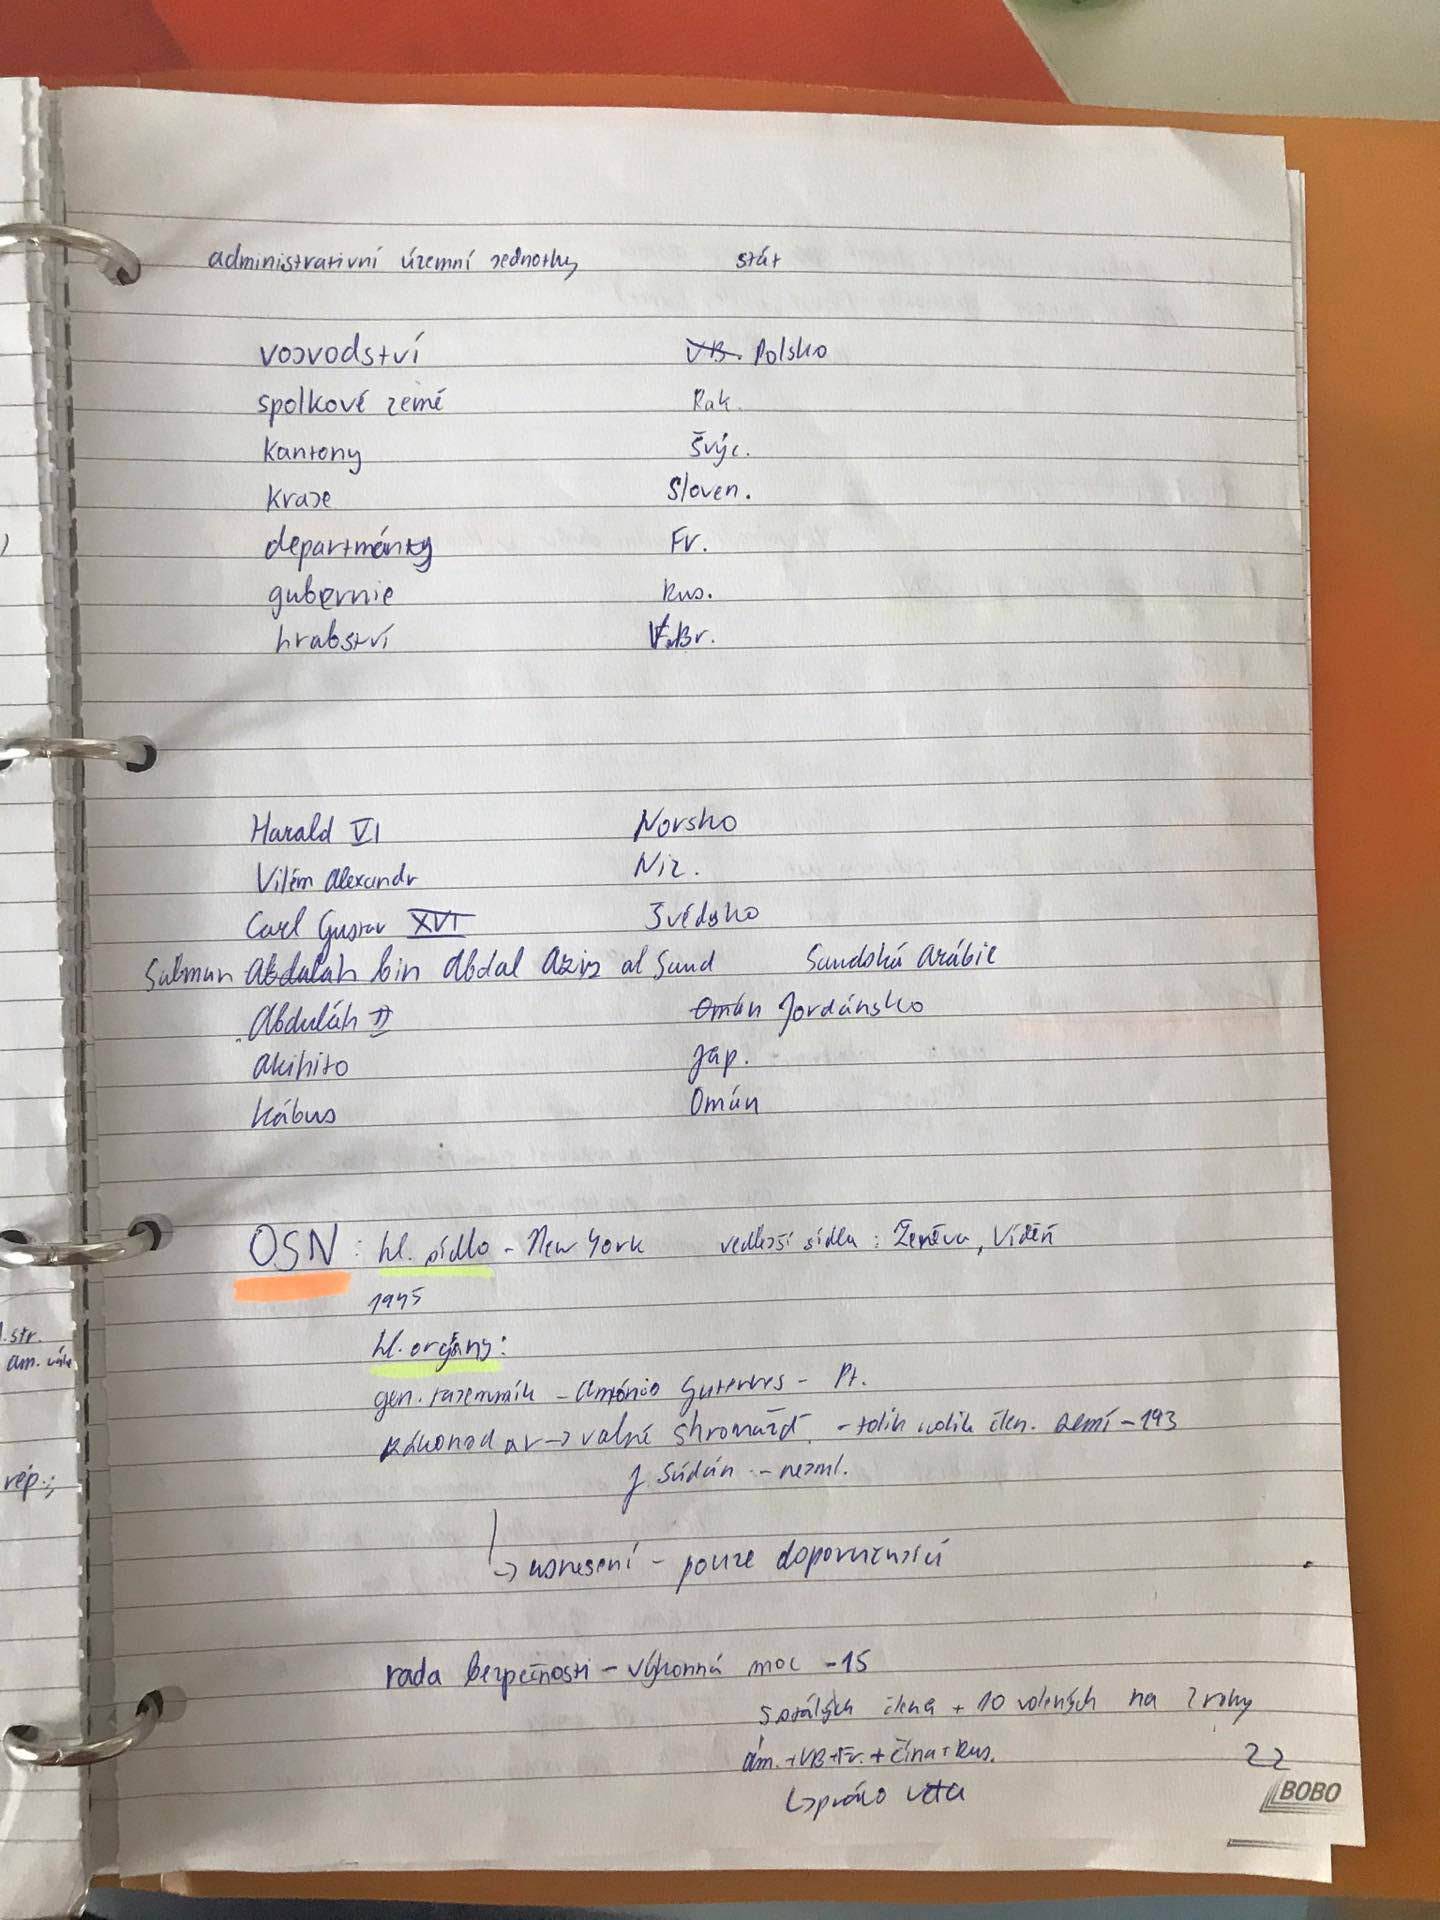 administrativní územní jednotky stát
vojvodství VB. Polsko
spolkové země Rak.
kantony Švýc.
kraje Sloven.
departmánty Fr.
gubernie Rus.
hrabství V.Br.
Harald VI Norsko
Vilém Alexandr Niz.
Carl Gustav XVI Švédsko
Salman Abdalah bin Abdal Aziz al Saud Saudská Arábie
Abduláh II Omán Jordánsko
Akihito Jap.
Kábus Omán
OSN: hl. sídlo - New York vedlejší sídla: Ženeva, Vídeň
1945
hl. orgány:
gen. tajemník - António Guterres - Pt.
zákonodar -> valné shromážd. - tolik kolik člen. zemí - 193
J. Súdán - nejml.
-> usnesení - pouze doporučující
rada bezpečnosti - výkonná moc - 15
5 stálých člena + 10 volených na 2 roky
Am. + VB + Fr. + Čína + Rus.
-> právo veta
22
BOBO
l. str.
am.
rep.;
)